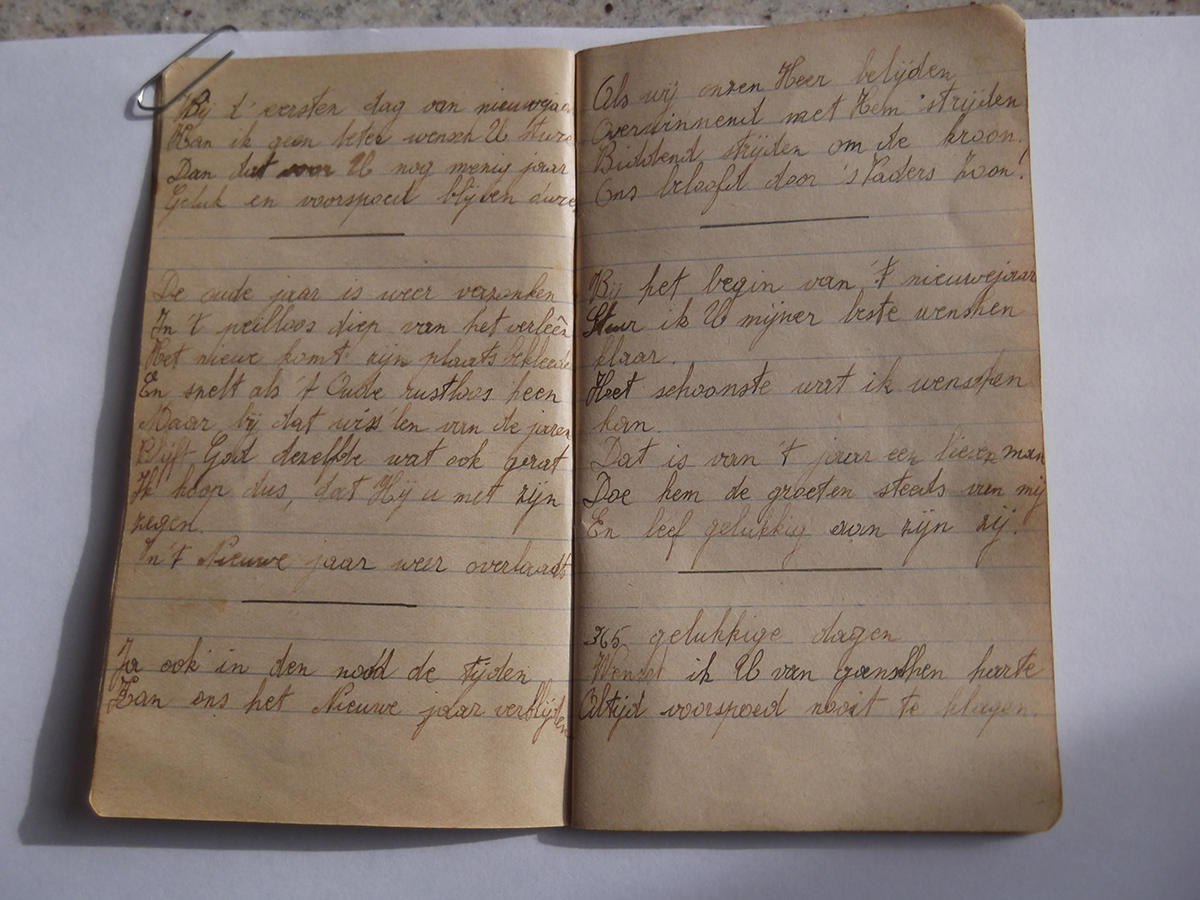 Bij t' eersten dag van nieuwejaa
Kan ik geen beter wensch U sture
Dan dat voor U nog menig jaar
Geluk en voorspoed blijven dure
De oude jaar is weer verzonken
In 't peilloos diep van het verleên
Het nieuwe komt zijn plaats bekleede
En snelt als 't Oude rustloos heen
Maar bij dat wiss'len van de jaren
Blijft God dezelfde wat ook gaat
Ik hoop dus, dat Hij u met zijn
zegen.
In 't Nieuwe jaar weer overlaadt
Ja ook in den nood de tijden
Kan ons het Nieuwe jaar verblijden
Als wij onzen Heer belijden
Overwinnend met Hem strijden
Biddend strijden om de kroon.
Ons beloofd door 's Vaders Zoon!
Bij het begin van 't nieuwejaar
Stuur ik U mijner beste wenshen
klaar.
Heet schoonste wat ik wenschen
kan.
Dat is van 't jaar een lieven man
Doe hem de groeten steeds van mij
En leef gelukkig aan zijn zij.
365 gelukkige dagen
Wensch ik U van ganschen harte
Altijd voorspoed nooit te klagen.